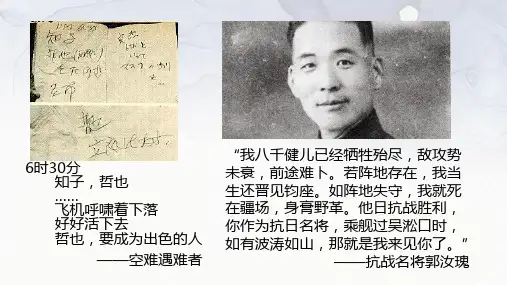 知子
6时30分
知子，哲也
……
飞机呼啸着下落
好好活下去
哲也，要成为出色的人
——空难遇难者
“我八千健儿已经牺牲殆尽，敌攻势
未衰，前途难卜。若阵地存在，我当
生还晋见钧座。如阵地失守，我就死
在疆场，身膏野革。他日抗战胜利，
你作为抗日名将，乘舰过吴淞口时，
如有波涛如山，那就是我来见你了。”
——抗战名将郭汝瑰